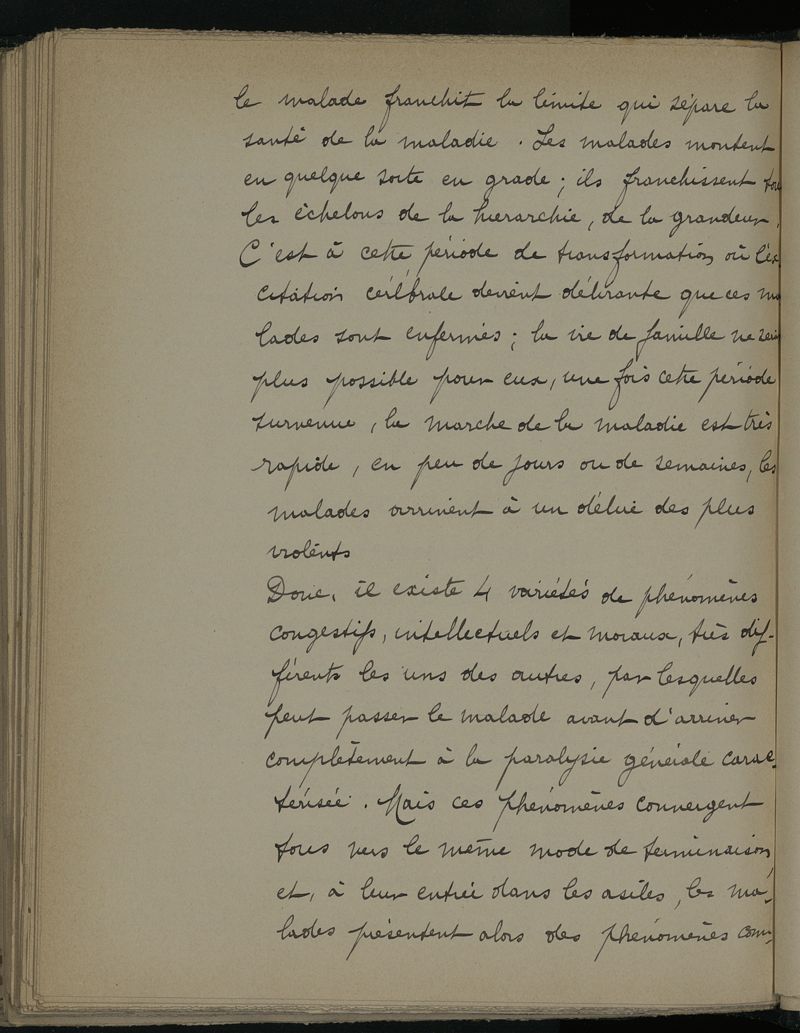 le malade franchit la limite qui sépare la
santé de la maladie. Les malades montent
en quelque sorte en grade ; ils franchissent tou
les échelons de la hierarchie, de la grandeur.
C'est à cette période de transformation où l'ex
citation cérébrale devient délirante que ces ma
lades sont enfermés ; la vie de famille ne sera
plus possible pour eux, une fois cette période
survenue, la marche de la maladie est très
rapide, en peu de jours ou de semaines, les
malades arrivent à un délire des plus
violents
Donc, il existe 4 variétés de phénomènes
congestifs, intellectuels et moraux, très dif-
férents les uns des autres, par lesquelles
peut passer le malade avant d'arriver
complètement à la paralysie générale carac-
térisée. Mais ces phénomènes convergent
tous vers le même mode de terminaison,
et, à leur entrée dans les asiles, les ma-
lades présentent alors des phénomènes com-